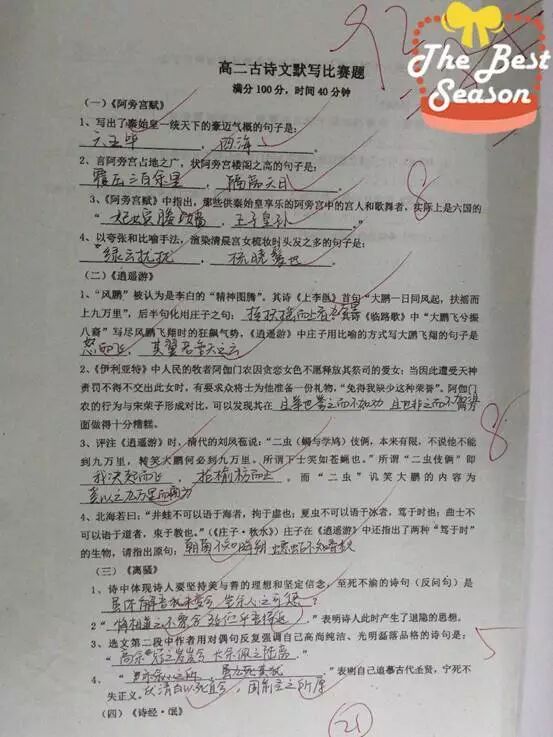 92
The Best
Season
高二古诗文默写比赛题
满分100分，时间40分钟
（一）《阿旁宫赋》
1、写出了秦始皇一统天下的豪迈气概的句子是：
六王毕，四海一。
2、言阿旁宫占地之广，状阿旁宫楼阁之高的句子是：
覆压三百余里，隔离天日。
3、《阿旁宫赋》中指出，那些供秦始皇享乐的阿旁宫中的宫人和歌舞者，实际上是六国的
“妃嫔媵嫱，王子皇孙”
8
4、以夸张和比喻手法，渲染清晨宫女梳妆时头发之多的句子是：
“绿云扰扰，梳晓鬟也”。
（二）《逍遥游》
1、“风鹏”被认为是李白的“精神图腾”。其诗《上李邕》首句“大鹏一日同风起，扶摇而
上九万里”，后半句化用庄子之句：《临路歌》中“大鹏飞兮振
八裔”写尽风鹏飞翔时的狂飙气势，《逍遥游》中庄子用比喻的方式写大鹏飞翔的句子是
怒而飞，其翼若垂天之云
2、《伊利亚特》中人民的牧者阿伽门农因贪恋女色不愿释放其祭司的爱女；当因此遭受天神
责罚不得不交出此女时，有要求众将士为他准备一份礼物，“免得我缺少这种荣誉”。阿伽门
农的行为与宋荣子形成对比，可以发现其在且举世誉之而不加劝 且世非之而不加沮方
面做得十分糟糕。
8
3、评注《逍遥游》时，清代的刘凤苞说：“二虫（蜩与学鸠）伎俩，本来有限，不说他不能
到九万里，转笑大鹏何必到九万里。所谓下士笑如苍蝇也。”所谓“二虫伎俩”即
我决起而飞，抢榆枋而止。而“二虫”讥笑大鹏的内容为
奚以之九万里而南为
4、北海若曰：“井蛙不可以语于海者，拘于虚也；夏虫不可以语于冰者，笃于时也；曲士不
可以语于道者，束于教也。”（《庄子·秋水》）庄子在《逍遥游》中还指出了两种“笃于时”
的生物，请指出原句：朝菌不知晦朔 蟪蛄不知春秋
（三）《离骚》
1、诗中体现诗人要坚持美与善的理想和坚定信念，至死不渝的诗句（反问句）是
虽体解吾犹未变兮
2“”表明诗人此时产生了退隐的思想。
3、选文第二段中作者用对偶句反复强调自己高尚纯洁、光明磊落品格的诗句是：
5
4、“”表明自己追慕古代圣贤，宁死不
失正义。伏清白以死直兮，固前圣之所厚
（四）《诗经·氓》
21